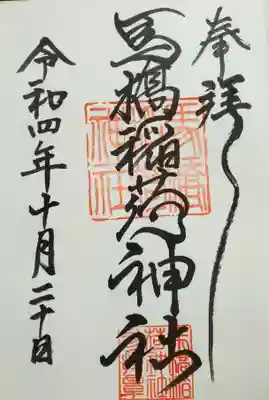 奉拝
馬橋稲荷神社
令和四年十月二十日